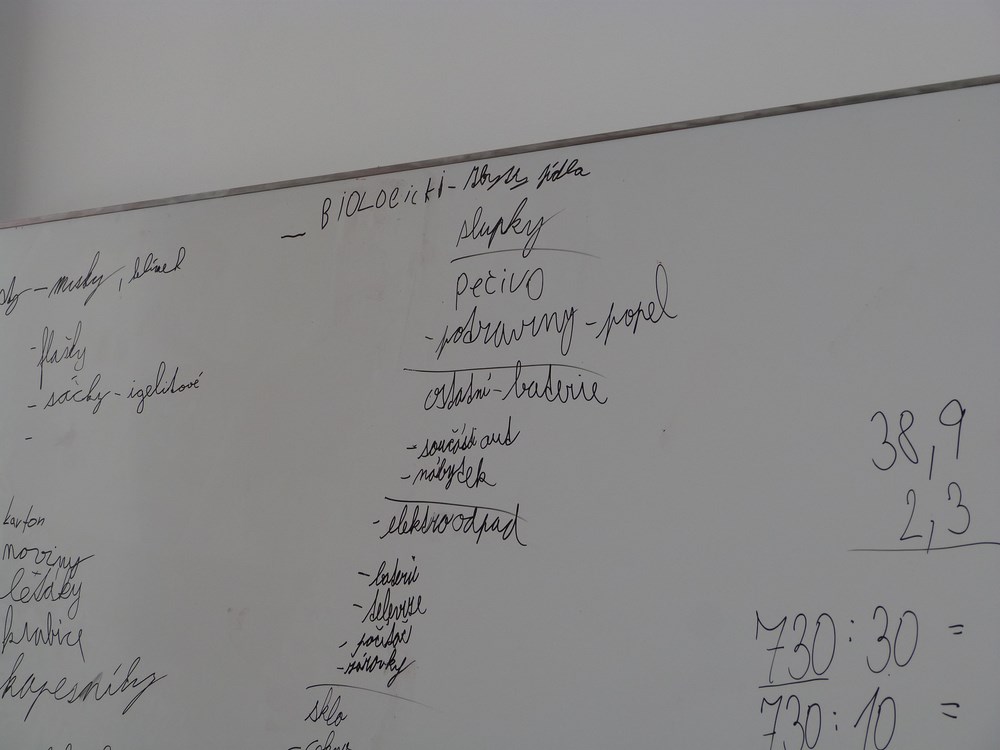 BiOLOGický - zbytky jídla
slupky
pečivo
- potraviny - popel
ostatní - baterie
- součásti aut
- nábytek
- elektroodpad
- baterie
- televize
- počítač
- žárovky
sklo
- misky,
- flašky
- sáčky - igelitové
-
karton
noviny
letáky
krabice
kapesníky
38,9
2,3
730 : 30 =
730 : 10 =